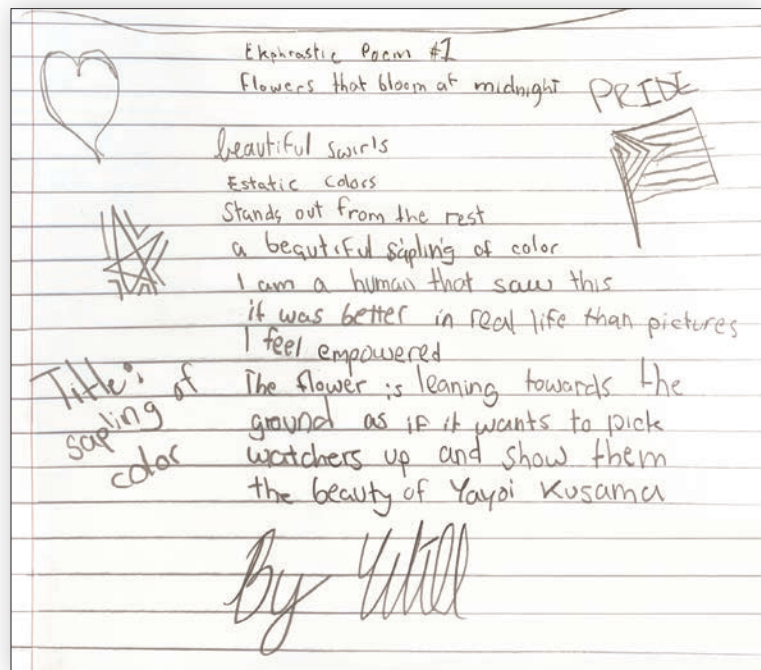 Ekphrastic Poem #1
Flowers that bloom at midnight
PRIDE
beautiful swirls
Estatic colors
Stands out from the rest
a beautiful sapling of color
I am a human that saw this
it was better in real life than pictures
I feel empowered
Title:
sapling of
color
The flower is leaning towards the
ground as if it wants to pick
watchers up and show them
the beauty of Yayoi Kusama
By Will